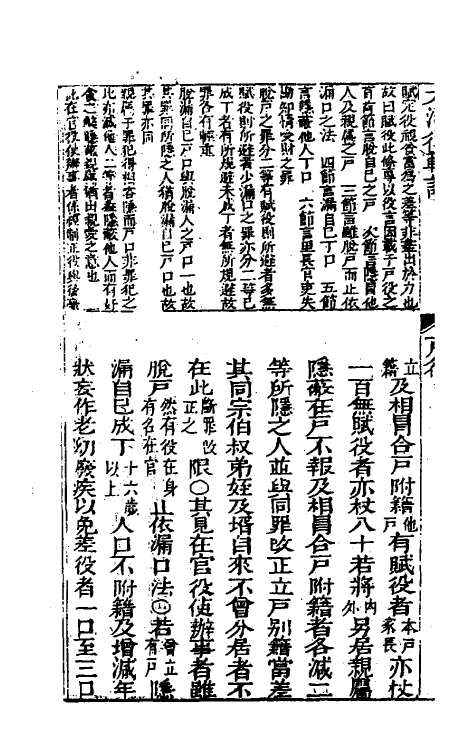 大清律輯註
故曰賦役此條專以役言因載于戶役之
節言脫自己之戶 次節言隱他
人及親屬之戶 三節言雖脫戶而止依
漏口之法 四節言漏自己丁口 五節
言隱蔽他人丁口 六節言里長官吏失
勘知情受財之罪
脫戶之罪分二等有賦役則所避者多無
賦役則所避者少漏口之罪亦分二等已
成丁者有所規避未成丁者無所規避故
罪各有輕重
脫漏自己戶口與脫漏人之戶口一也故
其罪同所隱之人猶脫漏自己戶口也故
其罪亦同
親屬于罪犯得相容隱而戶口非罪犯之
此亦減他人二等者隱蔽他人而有奸
貪之隱蔽親屬猶出親愛之意也
此在官役使辦事者係正役與後條
戶律
立籍及相冒合戶附籍他戶有賦役者本戶家長亦杖
一百無賦役者亦杖八十若將內外另居親屬
隱蔽在戶不報及相冒合戶附籍者各減二
等所隱之人並與同罪改正立戶別籍當差
其同宗伯叔弟姪及壻自來不曾分居者不
在此斷罪改正之限〇其見在官役使辦事者雖
脫戶然有役在身有名在官止依漏口法〇若曾立有戶隱
漏自己成丁十六歲以上人口不附籍及增減年
狀妄作老幼廢疾以免差役者一口至三口